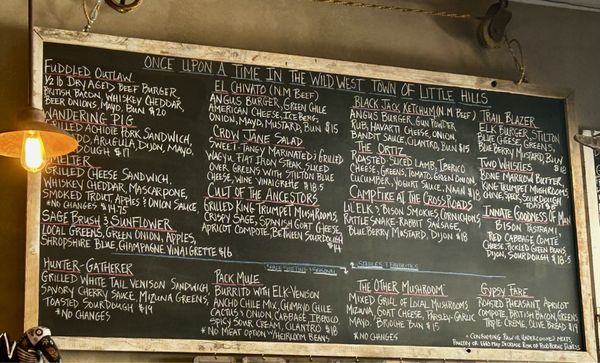 ONCE UPON A TIME IN THE WILD WEST TOWN OF LITTLE HILLS
FUDDLED OUTLAW
1/2 LB DRY AGED BEEF BURGER,
BRITISH BACON, WHISKEY CHEDDAR,
BEER ONIONS, MAYO, BUN $20
WANDERING PIG
GRILLED ACHIOTE PORK SANDWICH,
AVOCADO, ARUGULA, DIJON, MAYO,
SOURDOUGH $17
SMELTER
GRILLED CHEESE SANDWICH,
WHISKEY CHEDDAR, MASCARPONE,
SMOKED TROUT APPLES & ONION SAUCE
*NO CHANGES $14.75
SAGE BRUSH & SUNFLOWER
LOCAL GREENS, GREEN ONION, APPLES,
SHROPSHIRE BLUE, CHAMPAGNE VINAIGRETTE $16
HUNTER-GATHERER
GRILLED WHITE TAIL VENISON SANDWICH,
SAVORY CHERRY SAUCE, MIZUNA GREENS,
TOASTED SOURDOUGH $19
*NO CHANGES
EL CHIVATO (N.M BEEF)
ANGUS BURGER, GREEN CHILE,
AMERICAN CHEESE, ICEBERG,
ONION, MAYO, MUSTARD, BUN $15
CROW JANE SALAD
SWEET-TANGY MARINATED & GRILLED
WAGYU FLAT IRON STEAK SLICED
OVER GREENS WITH STILTON BLUE
CHEESE, WINE VINAIGRETTE $18.5
CULT OF THE ANCESTORS
GRILLED KING TRUMPET MUSHROOMS,
CRISPY SAGE, SPANISH GOAT CHEESE,
APRICOT COMPOTE, BETWEEN SOURDOUGH
$14
PACK MULE
BURRITO WITH ELK-VENISON
ANCHO CHILE MIX, CHIMAYO CHILE
CACTUS & ONION, CABBAGE, IBERICO
SPICY SOUR CREAM, CILANTRO $18
*NO MEAT OPTION - HEIRLOOM BEANS
BLACK JACK KETCHUM (N.M BEEF)
ANGUS BURGER, GUN POWDER
RUB, HAVARTI CHEESE, ONION,
BANDIT SAUCE, CILANTRO, BUN $15
THE ORTIZ
ROASTED SLICED LAMB, IBERICO
CHEESE, GREENS, TOMATO, GREEN ONION
CUCUMBER, YOGURT SAUCE, NAAN $18
CAMPFIRE AT THE CROSSROADS
LIL ELK & BISON SMOKIES, CORNICHONS,
RATTLE SNAKE-RABBIT SAUSAGE,
BLUE BERRY MUSTARD, DIJON $18
STAPLES & FAVORITES
THE OTHER MUSHROOM
MIXED GRILL OF LOCAL MUSHROOMS
MIZUNA, GOAT CHEESE, PARSLEY-GARLIC
MAYO, BRIOCHE BUN $15
*NO CHANGES
TRAIL BLAZER
ELK BURGER, STILTON
BLUE CHEESE, GREENS,
BLUE BERRY MUSTARD, BUN
TWO WHISTLES
BONE MARROW BUTTER
KING TRUMPET MUSHROOMS,
CHIVE SPECK, SOURDOUGH
INNATE GOODNESS OF MAN
BISON PASTRAMI,
RED CABBAGE, COMTE
CHEESE, PICKLED GREEN BEANS,
DIJON, SOURDOUGH $18.5
GYPSY FARE
ROASTED PHEASANT, APRICOT
COMPOTE, BRITISH BACON, GREENS
TRIPLE CRÈME, OLIVE BREAD $19
* CONSUMING RAW OR UNDERCOOKED MEATS,
POULTRY OR EGGS MAY INCREASE RISK OF FOOD BORNE ILLNESS